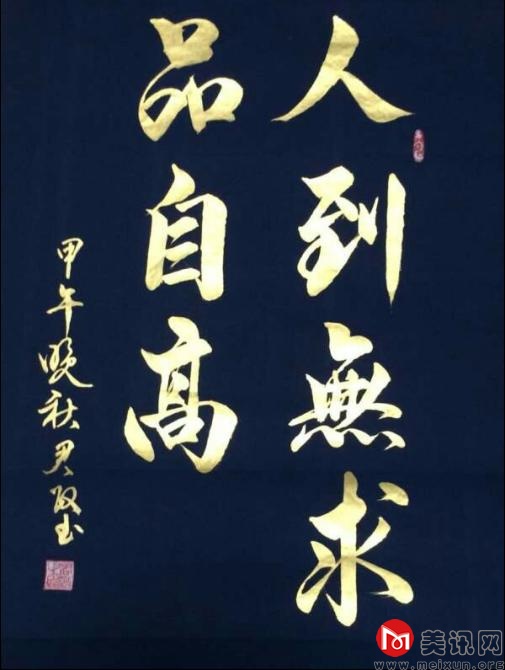 人到無求
品自高
甲午晚秋君政书
美讯网
www.meixun.org